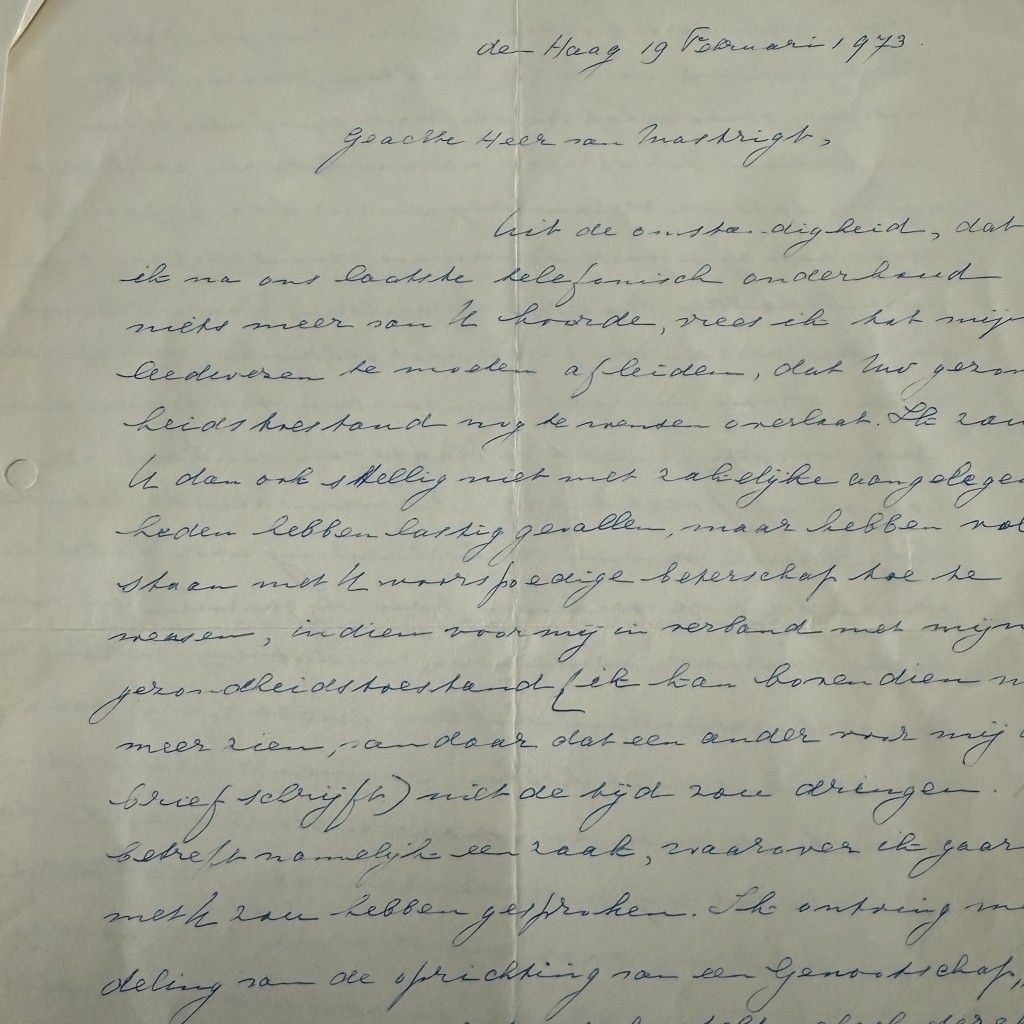 den Haag 19 Februari 1973
Geachte Heer van Mastrigt,
Uit de omstandigheid, dat
ik na ons laatste telefonisch onderhoud
niets meer van U hoorde, vrees ik tot mijn
leedwezen te moeten afleiden, dat Uw gezon
heidstoestand nog te wensen overlaat. Ik zou
U dan ook stellig niet met zakelijke aangelegen
heden hebben lastig gevallen, maar hebben vol
staan met U voorspoedige beterschap toe te
wensen, indien voor mij in verband met mijn
gezondheidstoestand (ik kan bovendien n
meer zien, vandaar dat een ander voor mij d
brief schrijft) niet de tijd zou dringen.
betreft namelijk een zaak, waarover ik gaar
met U zou hebben gesproken. Ik ontving me
deling van de oprichting van een Genootschap,